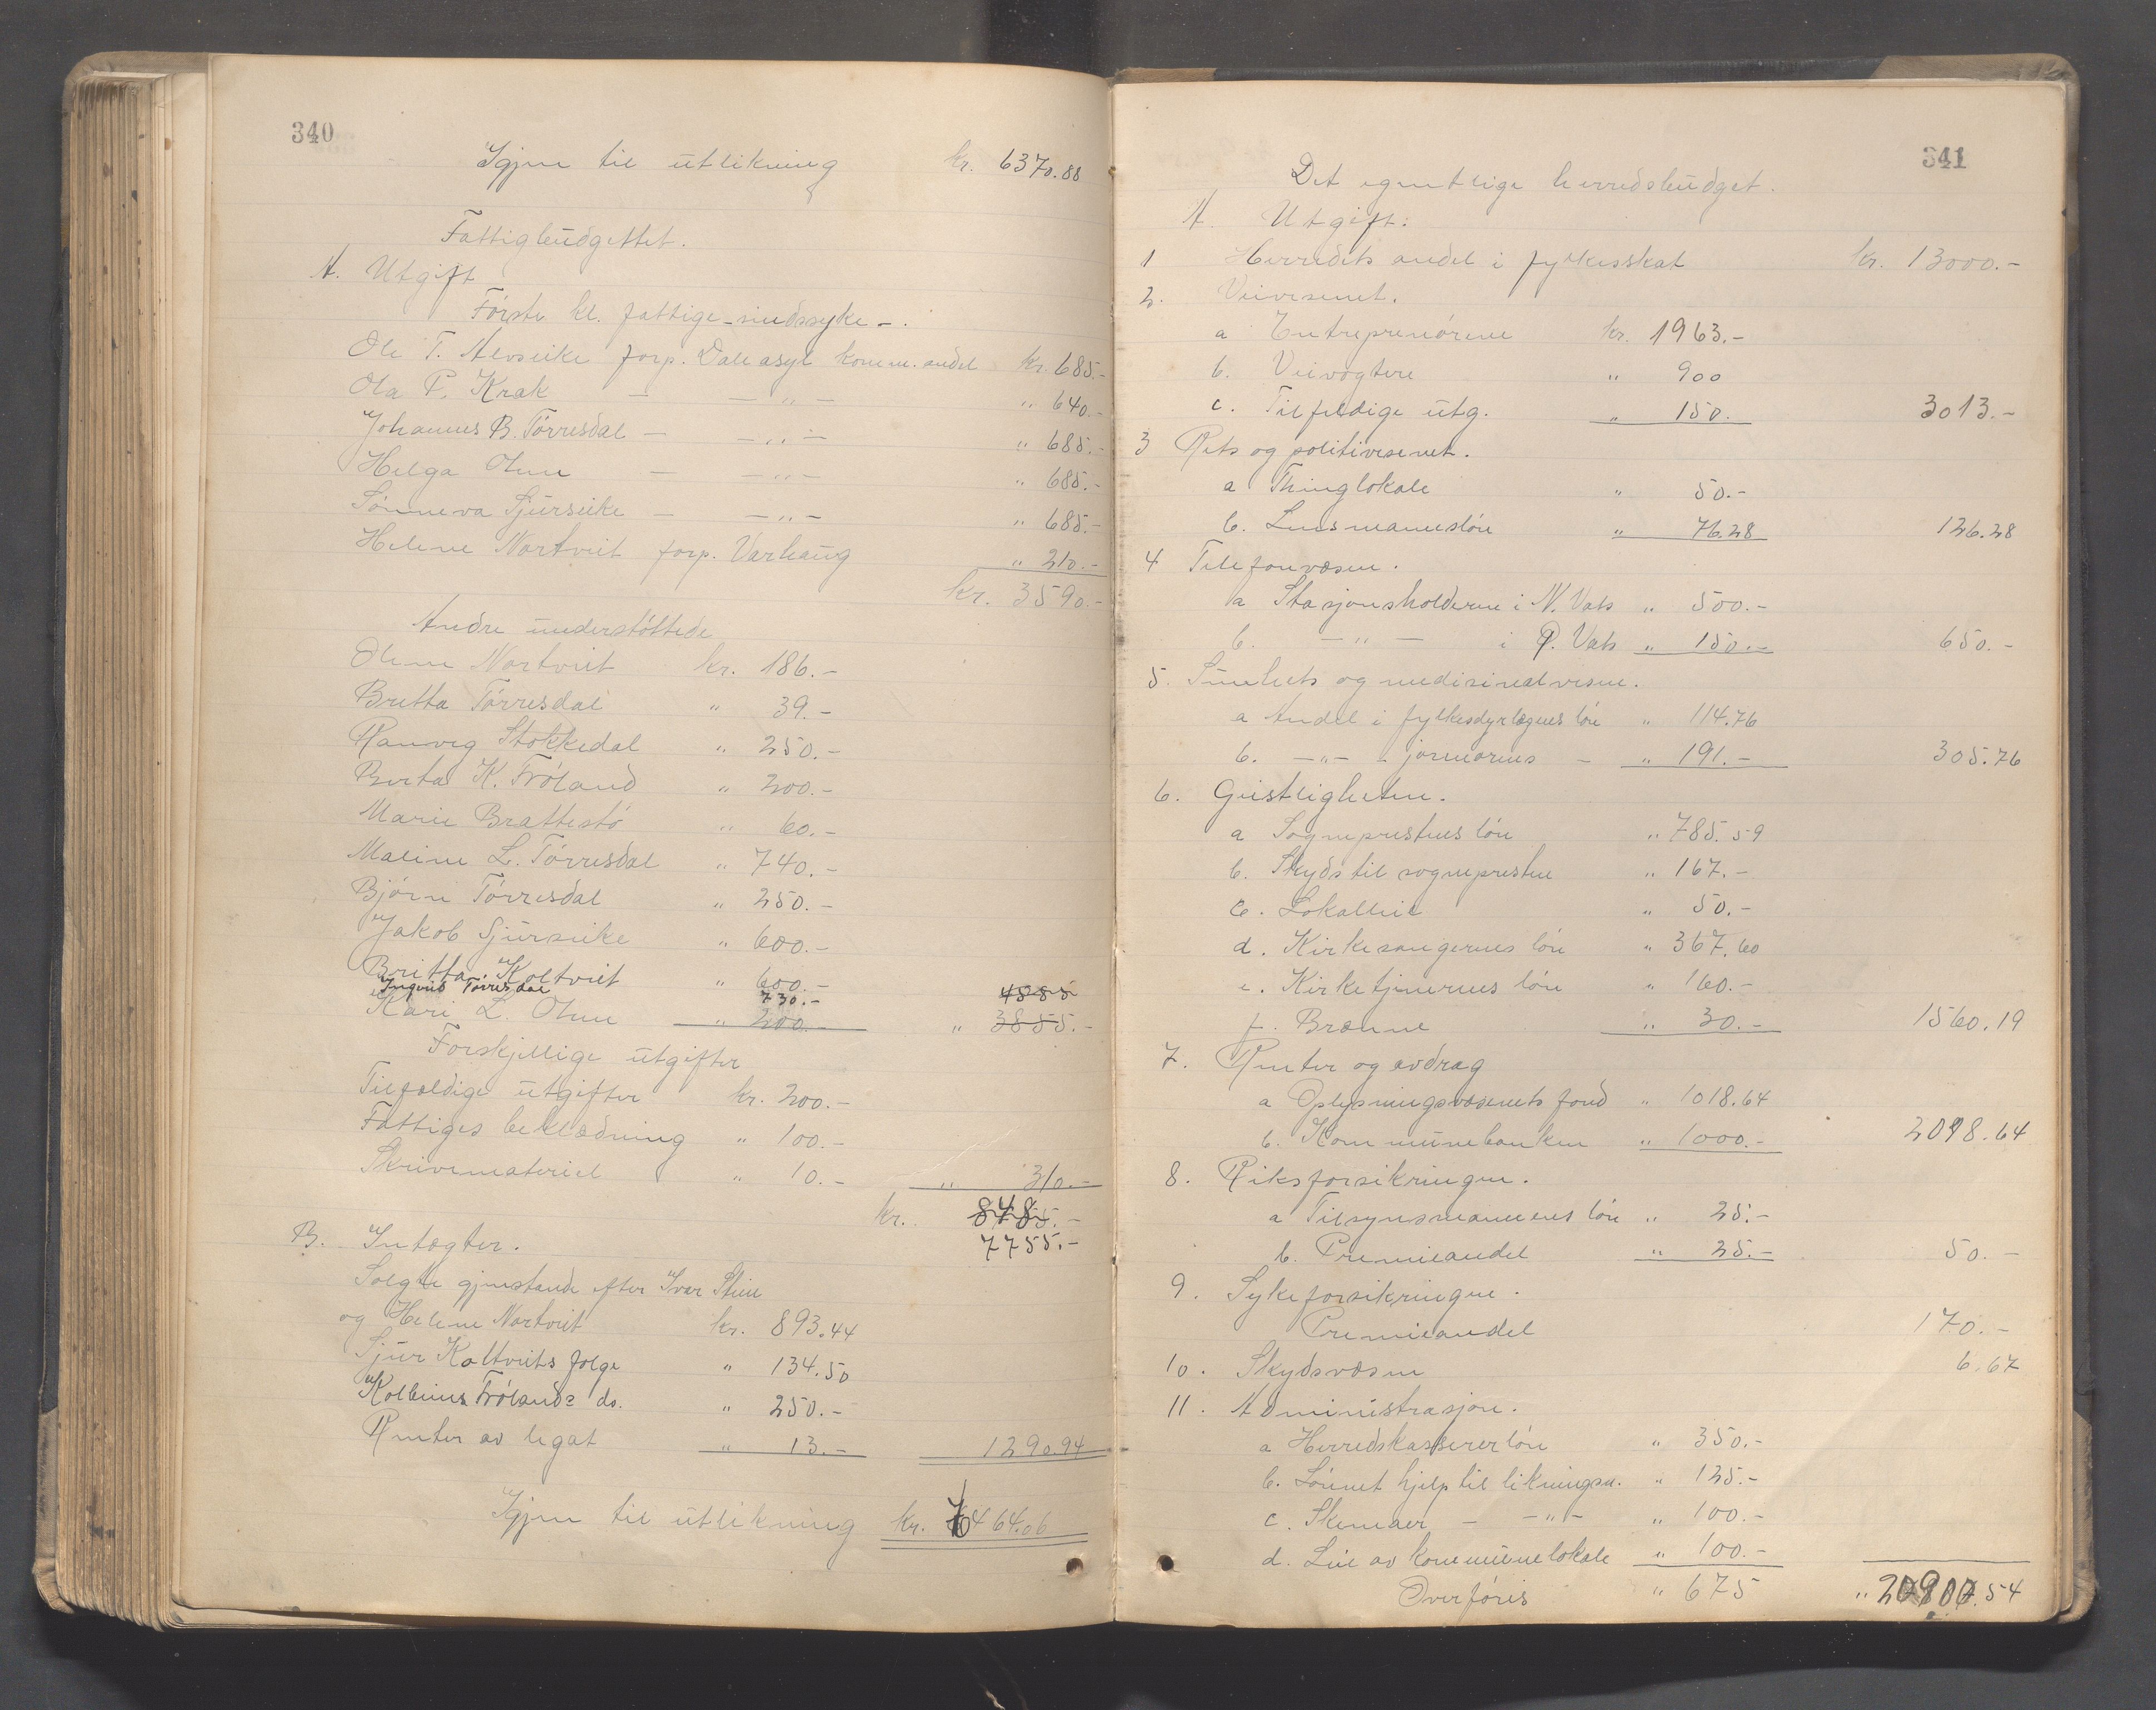 340
Igjen til utlikning kr. 6370.88
Fattigbudgettet.
A. Utgift
Første kl. fattige - sindssyke -.
Ole T. Alvseike forp. Dale asyl komm. andel kr. 685.-
Ola P. Krak - - " - " 640.-
Johannes B. Tørresdal - - " - " 685.-
Helga Olsen - - " - " 685.-
Sønneva Sjurseike - - " - " 685.-
Helene Nortveit forp. Varhaug " 210.-
kr. 3590.-
Andre understøttede
Olene Nortveit kr. 186.-
Britta Tørresdal " 39.-
Ranveg Stokkedal " 250.-
Berta K. Frøland " 200.-
Marie Brattestø " 60.-
Maline L. Tørresdal " 740.-
Bjørn Tørresdal " 250.-
Jakob Sjurseike " 600.-
Britta Koltveit " 600.-
Ingvid Tørresdal 730.- 4585
Kari L. Olsen " 200.- " 3855.-
Forskjellige utgifter
Tilfældige utgifter kr. 200.-
Fattiges beklædning " 100.-
Skrivemateriel " 10.- " 310.-
kr. 8485.-
7755.-
B. Intægter.
Solgte gjenstande efter Ivar Stene
og Helene Nortveit kr. 893.44
Sjur Koltveits følge " 134.50
Kolbeins Frølands do. " 250.-
Renter av legat " 13.- 1290.94
Igjen til utlikning kr. 6464.06
341
Det egentlige herredsbudget.
A. Utgift:
1 Herredets andel i fylkesskat kr. 13000.-
2. Veivesenet.
a Entreprenørene kr. 1963.-
b. Veivogtere " 900
c. Tilfeldige utg. " 150. 3013.-
3 Rets og politivesenet.
a Thinglokale " 50.-
b. Lensmannsløn " 76.28 126.28
4 Telefonvæsen.
a Stasjonsholderne i N. Vats " 500.-
b. - " - i Ø. Vats " 150.- 650.-
5. Sunhets og medisinalvesen.
a Andel i fylkesdyrlægens løn " 114.76
b. - " - - jormorens - " 191.- 305.76
6. Geistligheten.
a Sogneprestens løn " 785.59
b. Skyds til sognepresten " 167.-
c. Lokalleie " 50.-
d. Kirkesangernes løn " 367.60
e. Kirketjenernes løn " 160.-
f. Brænne " 30.- 1560.19
7. Renter og avdrag
a Oplysningsvæsenets fond " 1018.64
b. Kommunebanken " 1000.- 2018.64
8. Riksforsikringen.
a Tilsynsmannens løn " 25.-
b. Premieandel " 25.- 50.-
9. Sykeforsikringen.
Premieandel 170.-
10. Skydsvæsen 6.67
11. Administrasjon.
a Herredskassererløn " 350.-
b. Lønnet hjelp til likningsn. " 125.-
c. Skemaer - - " - " 100.-
d. Leie av kommunelokale " 100.-
Overføres " 675 " 20900.54